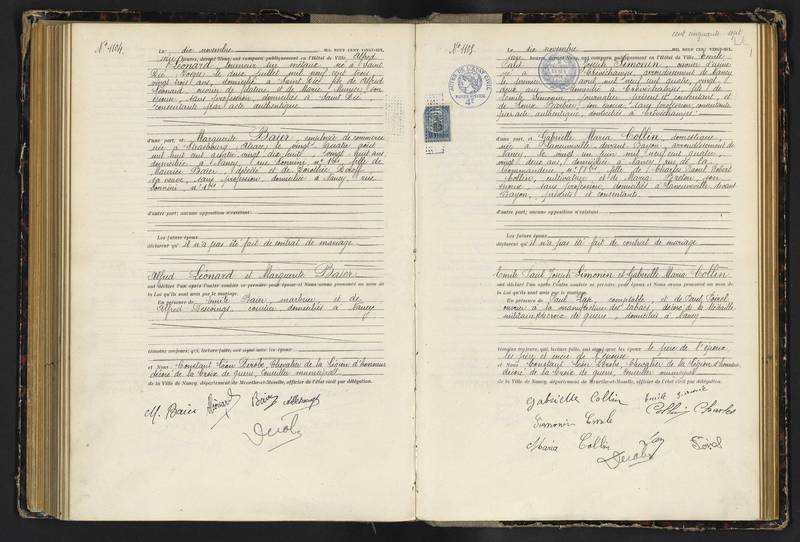 N° 1104.
Le dix novembre MIL NEUF CENT VINGT-SIX,
heures, devant Nous, ont comparu publiquement en l'Hôtel de Ville Alfred
Léonard, tourneur sur métaux, né à Saint
Dié, Vosges, le douze juillet mil neuf cent trois
vingt trois ans, domicilié à Saint Dié, fils de Alfred
Léonard, ouvrier de et de Marie son
épouse, sans profession, domiciliés à Saint Dié,
consentants par acte authentique.
d'une part; et Marguerite Baier, employée de commerce
née à Strasbourg, Alsace, le vingt quatre août
mil huit cent quatre vingt dix huit, vingt huit ans
domiciliée à Nancy, rue n° fille de
Maurice Baier, décédé et de Dorothée
sa veuve, sans profession, domiciliée à Nancy, rue
n°
d'autre part; aucune opposition n'existant.
Les futurs époux
déclarent qu'il n'a pas été fait de contrat de mariage.
Alfred Léonard et Marguerite Baier
ont déclaré l'un après l'autre vouloir se prendre pour époux et Nous avons prononcé au nom de
la Loi qu'ils sont unis par le mariage.
En présence de Emile Baier, marbrier, et de
Alfred courtier, domiciliés à Nancy
témoins majeurs, qui, lecture faite, ont signé avec les époux
et Nous Constant Léon Chevalier de la Légion d'honneur
décoré de la Croix de guerre, Conseiller municipal
de la Ville de Nancy, département de Meurthe-et-Moselle, officier de l'état civil par délégation.
M. Baier Léonard Baier
cent cinquante sept
N° 1105.
Le dix novembre MIL NEUF CENT VINGT-SIX,
heures, devant Nous, ont comparu publiquement en l'Hôtel de Ville Emile
Paul Joseph Simonin, ouvrier d'usine
né à arrondissement de Nancy
le avril mil neuf cent quatre, vingt
deux ans, domicilié à fils de
Emile Simonin, journalier, présent et consentant, et
de son épouse, sans profession, consentante
par acte authentique, domiciliés à
d'une part; et Gabrielle Maria Collin, domestique,
née à Laneuveville devant Bayon, arrondissement de
Nancy, le vingt un juin mil neuf cent quatre,
vingt deux ans, domiciliée à Nancy, rue de la
Commanderie n° fille de Charles
Collin, cultivateur et de Maria Breton, son
épouse, sans profession, domiciliés à Laneuveville devant
Bayon, présents et consentants.
d'autre part; aucune opposition n'existant.
Les futurs époux
déclarent qu'il n'a pas été fait de contrat de mariage
Emile Paul Joseph Simonin et Gabrielle Maria Collin
ont déclaré l'un après l'autre vouloir se prendre pour époux et Nous avons prononcé au nom de
la Loi qu'ils sont unis par le mariage.
En présence de Paul comptable, et de Paul
ouvrier à la manufacture des tabacs, décoré de la Médaille
militaire et Croix de guerre, domiciliés à Nancy
témoins majeurs, qui, lecture faite, ont signé avec les époux le père de l'époux
les père et mère de l'épouse
et Nous Constant Léon Chevalier de la Légion d'honneur,
décoré de la Croix de guerre, Conseiller municipal
de la Ville de Nancy, département de Meurthe-et-Moselle, officier de l'état civil par délégation.
Gabrielle Collin Emile Simonin
Simonin Emile Collin Charles
Maria Collin